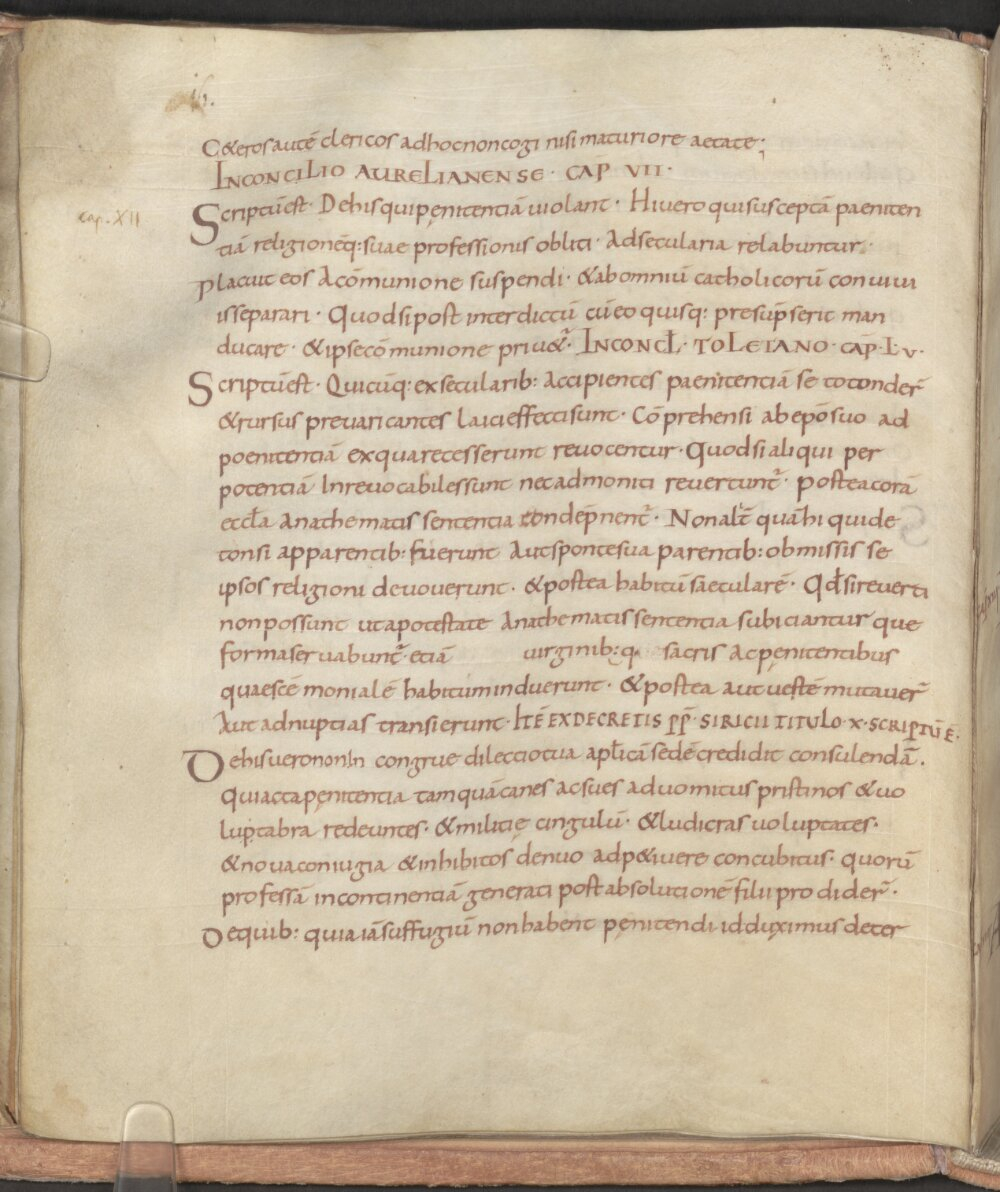 C&eros autē clericos adhoc non cogi nisi maturiore aetate;
INCONCILIO AURELIANENSE · CAP̄ VII ·
cap. XII
Scriptū est · Dehis qui penitentiā violant · Hivero qui susceptā paeniten
tiā religioneq: suae professionis obliti · Adsecularia relabuntur ·
placuit eos Acōmunione suspendi · &abomniū catholicorū conuiui
is separari · Quodsi post interdictū cū eo quisq: presūpserit man
ducare · &ipse cōmunione priu&ur̄ · INCONCIL̄ · TOLETANO · CAP̄ · LV ·
Scriptū est · Quicūq: exsecularib: Accipientes paenitentiā se totonder̄
&rursus prevaricantes laici effecti sunt · Cōprehensi abepō suo ad
poenitentiā exqua recesserunt revocentur · Quodsi aliqui per
potentiā Inrevocabiles sunt nec admoniti revertunt̄ · postea corā
eccl̄a Anathematis sententia condēpnent̄ · Non alit̄ quā hi qui de
tonsi apparentib: fuerunt Aut sponte sua parentib: obmissis se
ipsos religioni devoverunt · &postea habitū saeculare · Qd̄ si reverti
non possunt ut apotestate Anathematis sententia subiciantur que
forma servabunt̄ etiā virginib: q· sacris Ac penitentibus
quae scēmonialē habitum induerunt · &postea aut vestē mutaver̄
Aut adnuptias transierunt · ITĒ EXDECRETIS PP̄ · SIRICII TITULO · X · SCRIPTŪ Ē ·
Dehis vero non In congrue dilectio tua apl̄icā sedē credidit consulendā ·
Qui acta penitentia tamquā canes ac sues advomitus pristinos &vo
luptabra redeuntes · &militie cingulū · &ludicras voluptates ·
&nova coniugia &inhibitos denuo adp&ivere concubitus · quorū
professā incontinentiā generati post absolutionē filii prodider̄ ·
Dequib: quia iā suffugiū non habent penitendi id duximus decer